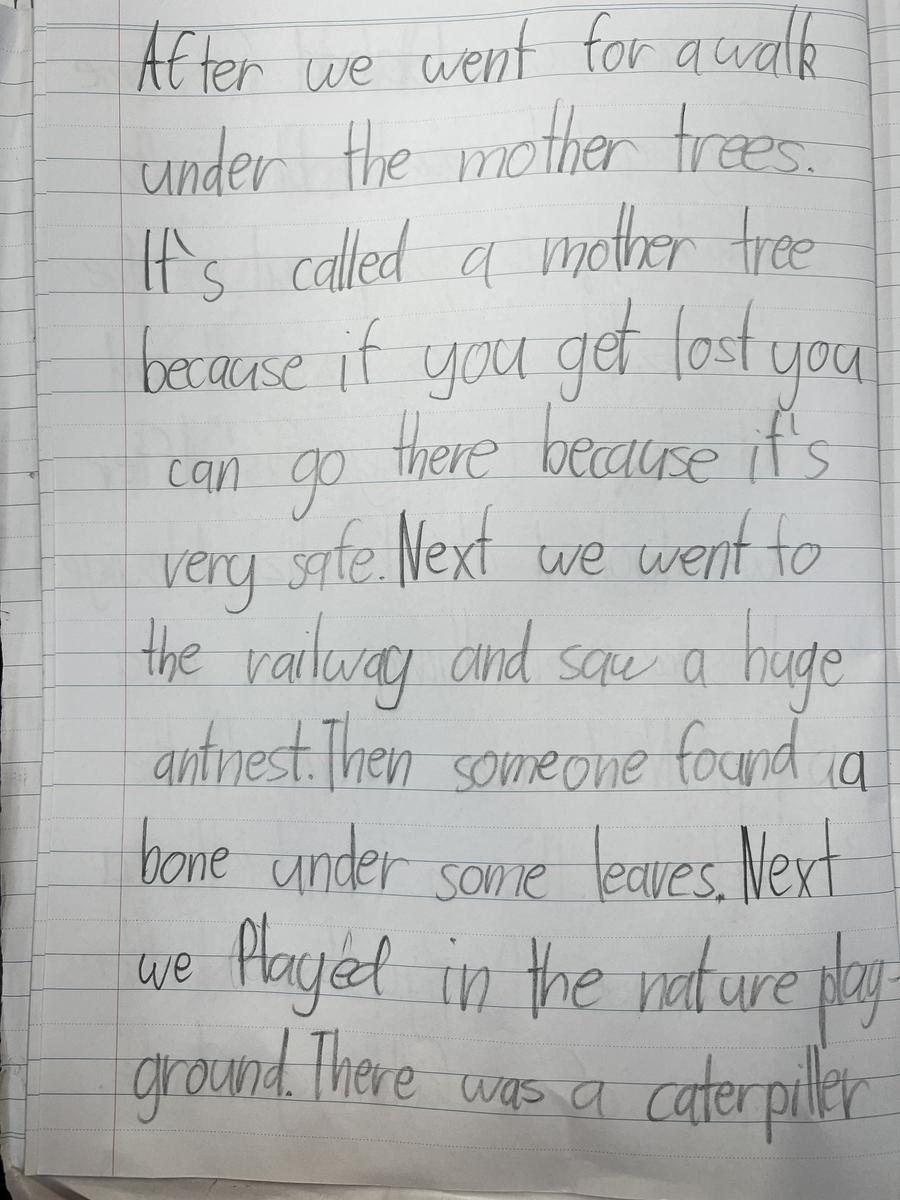 After we went for a walk
under the mother trees.
It's called a mother tree
because if you get lost you
can go there because it's
very safe. Next we went to
the railway and saw a huge
antnest. Then someone found a
bone under some leaves. Next
we Played in the nature play-
ground. There was a caterpiller